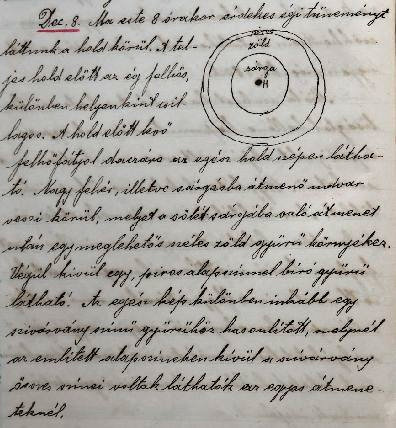 Dec. 8. Ma este 8 órakor érdekes égi tüneményt
láttunk a hold körül. A tel-
jes hold előtt az ég felhős,
különben helyenként csil-
lagos. A hold előtt levő
felhőfátyol dacára az egész hold szépen látha-
tó. Nagy fehér, illetve sárgásba átmenő udvar
veszi körül, melyet a sötét sárgába való átmenet
után egy meglehetős széles zöld gyűrű környékez.
Végül kívül egy, piros alapszínnel bíró gyűrű
látható. Az egész kép különben inkább egy
szivárvány színű gyűrűhöz hasonlított, melynél
az említett alapszíneken kívül a szivárvány
összes színei voltak láthatók az egyes átmene-
teknél.
piros
zöld
sárga
H